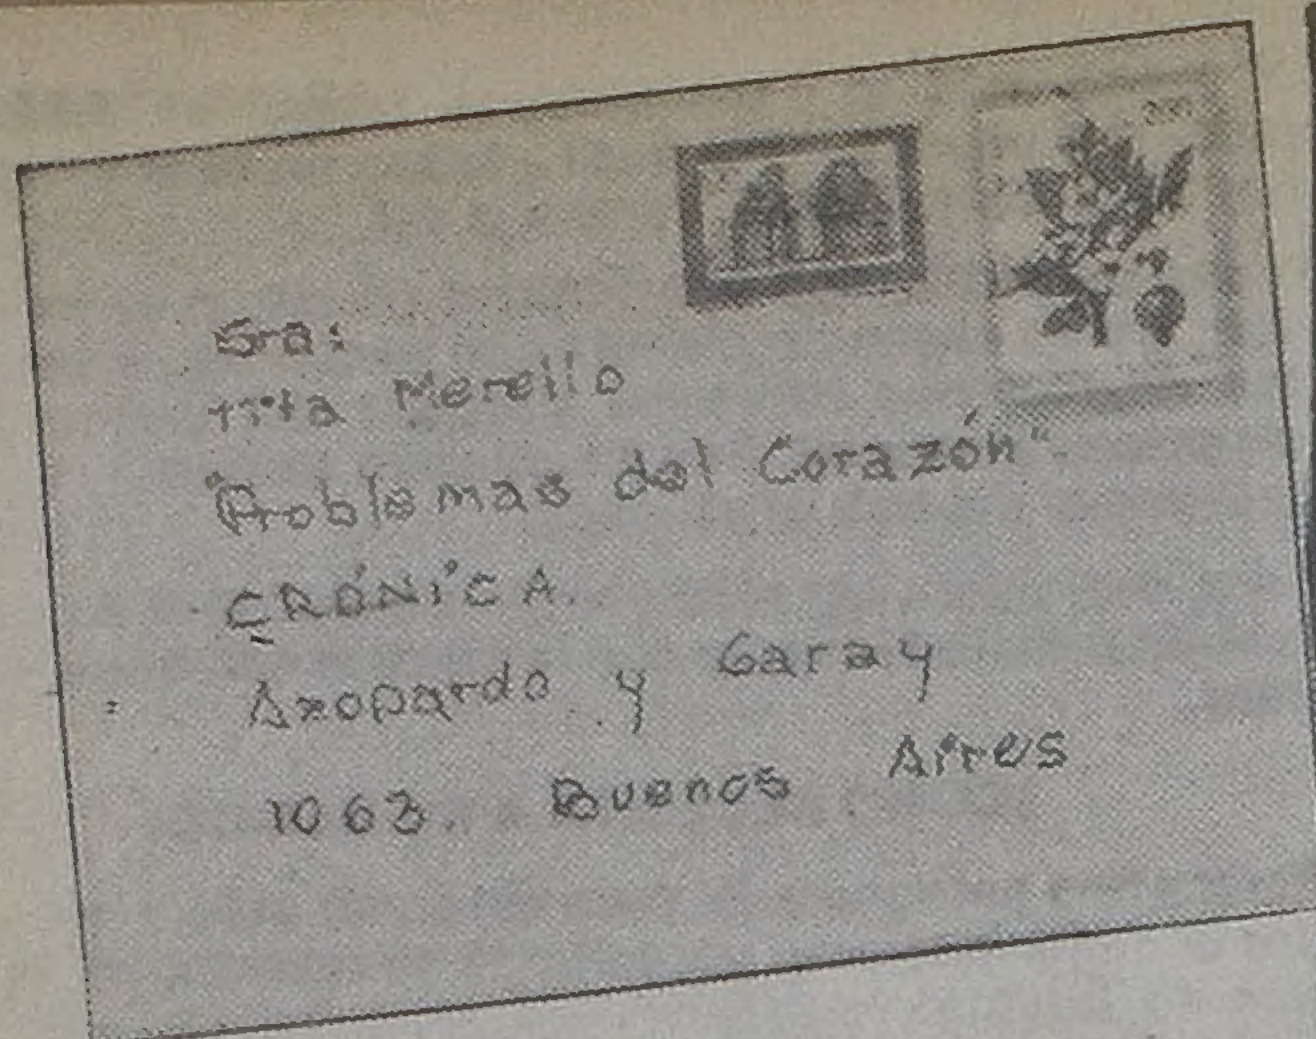 Sra:
Tita Merello
"Problemas del Corazón"
CRÓNICA.
Azopardo y Garay
1063. Buenos Aires